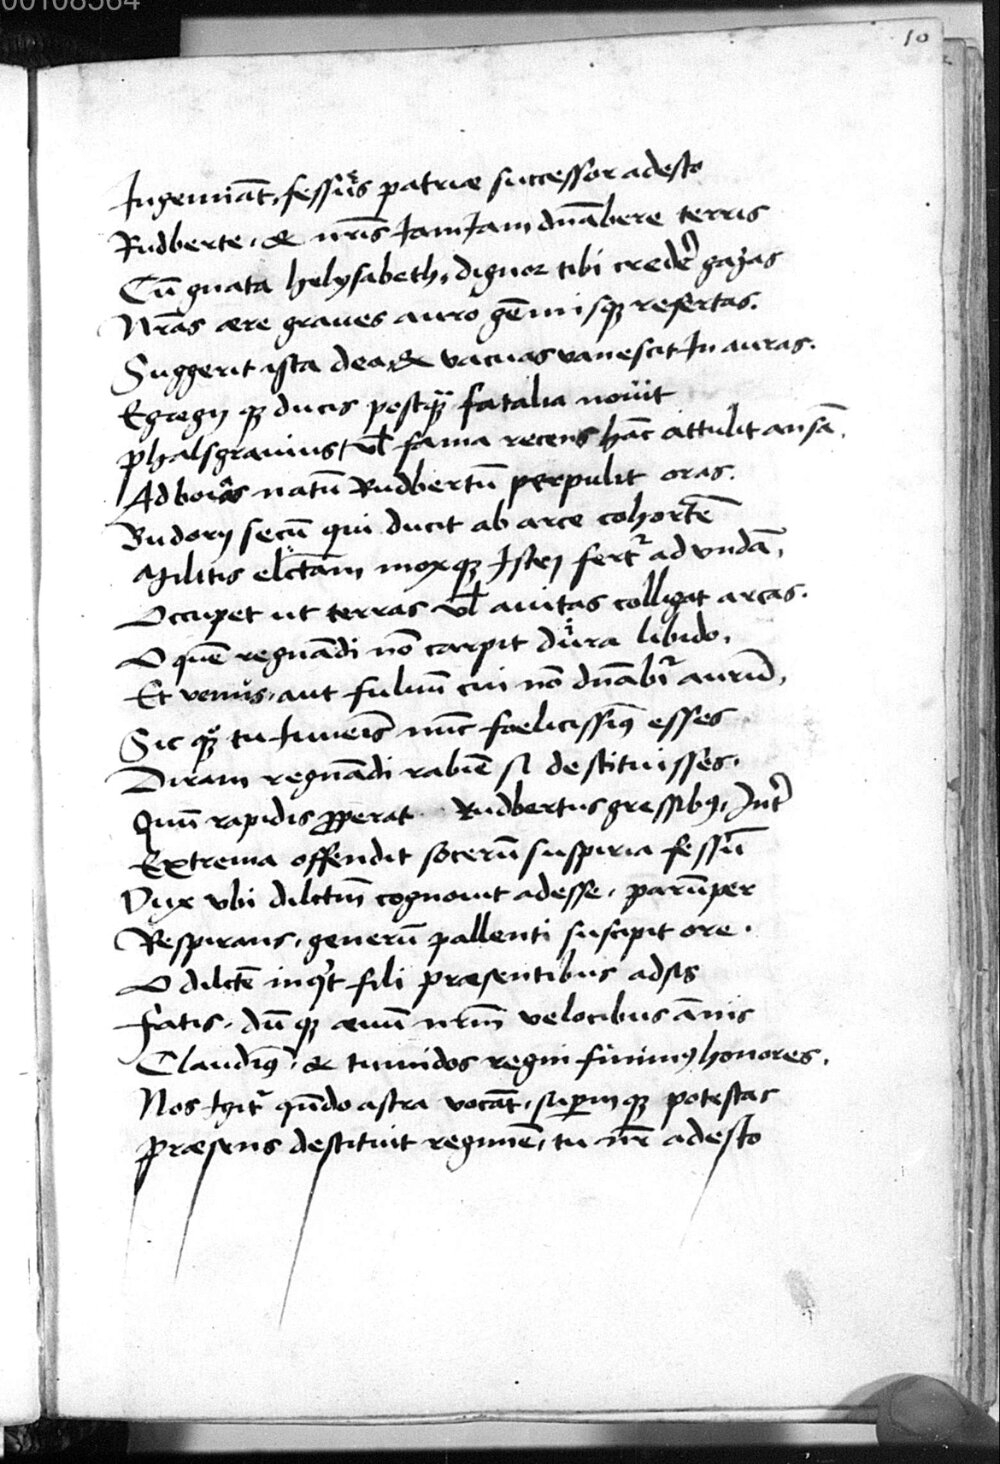 00108564
10
Ingemiāt, fessus patriæ successor adesto
Rudberte, & nr̄is IamIam dn̄abere terris
Cū gnata helysabeth, dignor tibi credeř gazas
Nr̄as ære graues auro gēmisq̨ refertas.
Suggerit ista dea, & vacuas vanescit In auras.
Egregij q̨ ducis postq̄ fatalia nouit
phalsgrauius, vl̄ fama recens hāc attulit ansā.
Ad boiōs natū Rudbertū perpulit oras.
Budorij secū qui ducit ab arce cohortē
Militis elc̄tam moxq̨ Istri fert̄ ad vndā,
Occupet ut terras vl̄ auitas colligat arcas.
O quē regnādi nō carpit dura libido,
Et venus, aut fuluū cui nō dn̄abit̄ aurū,
Sic q̄ tu Iuuenis nūc foelicissimꝰ esses
Diram regnādi rabiē si destituisses.
Quū rapidis ꝓperat Rudbertus gressibꝰ, Int̄
Extrema offendit socerū suspiria fessū
Dux vbi dilc̄tm̄ cognouit adesse, parūper
Respirans, generū pallenti suscipit ore.
O dilc̄te inq̄t fili præsentibus adsis
Fatis, dū q̨ æuū nr̄m velocibus ānis
Claudimꝰ, & tumidos regni finimꝰ honores.
Nos Igit̄ quādo astra vocāt, suꝑumq̨ potestas
Præsens destituit regimē, tu nr̄ adesto